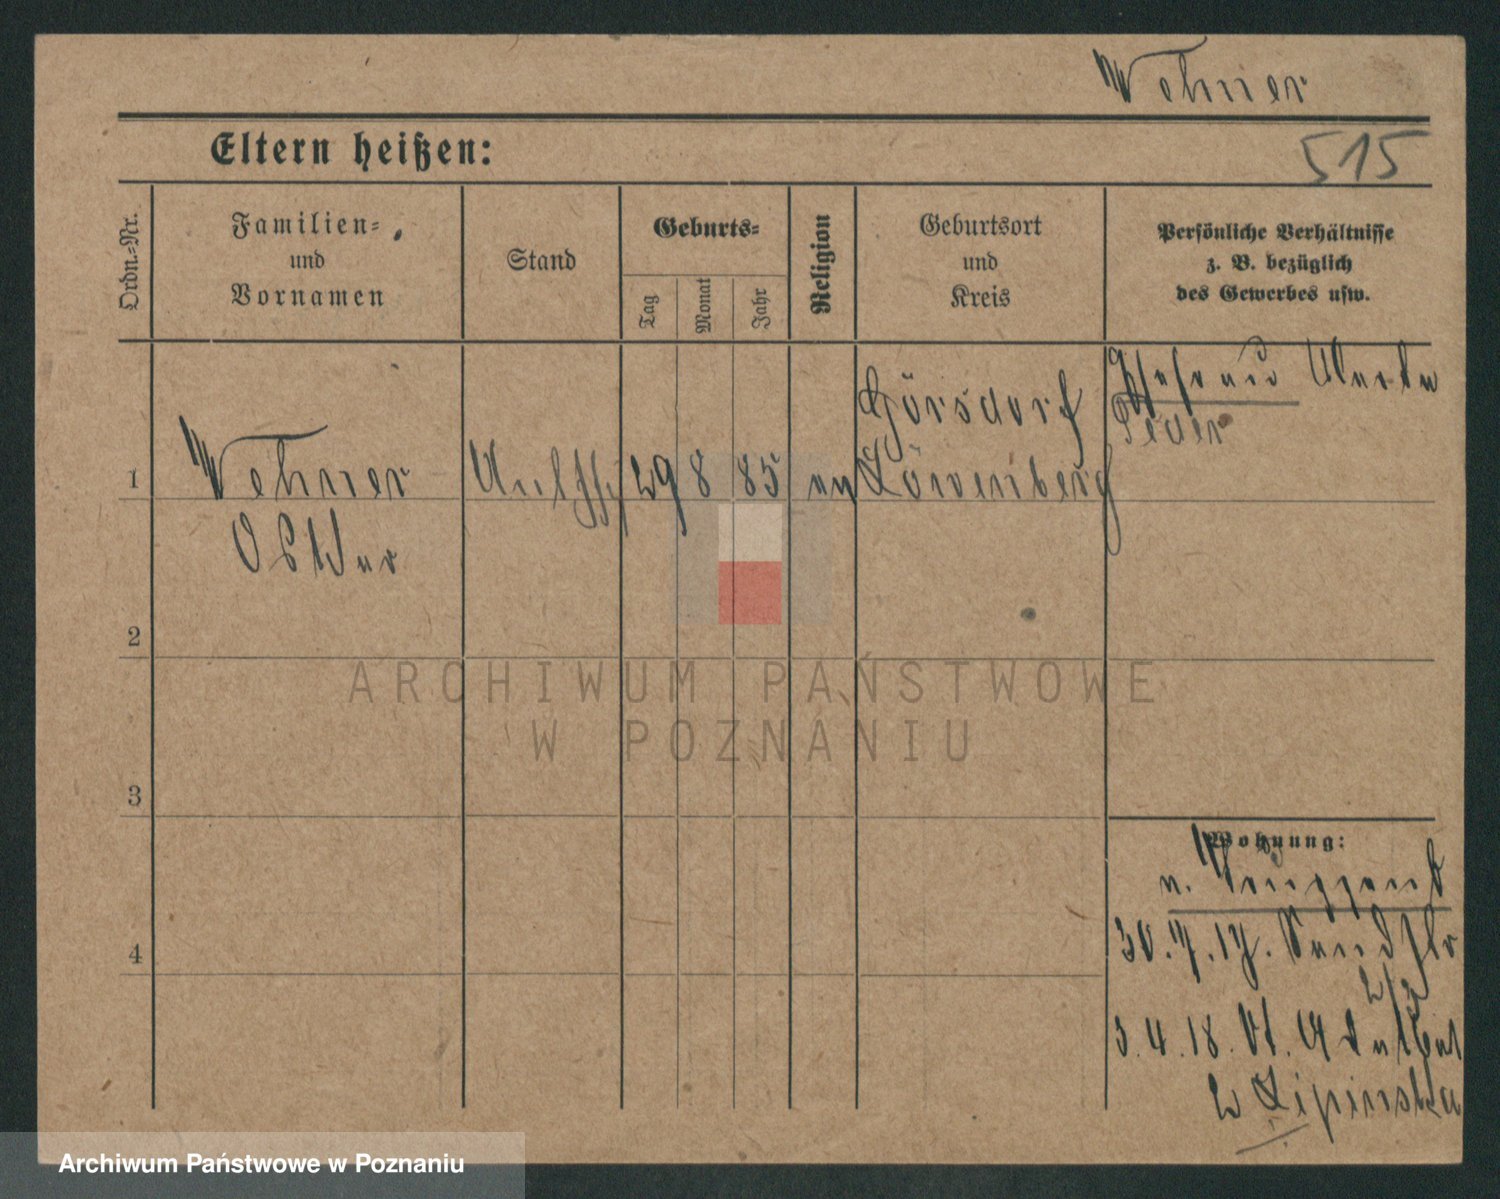 Wehner
515
Eltern heißen:
Ordn.-Nr.
Familien-
und
Vornamen
Stand
Geburts-
Tag
Monat
Jahr
Religion
Geburtsort
und
Kreis
Persönliche Verhältnisse
z. B. bezüglich
des Gewerbes usw.
1
Wehner
Oskar
29
8
85
Görsdorf
Löwenberg
Ehefrau
2
3
4
Wohnung:
v.
30.7.17.
3.4.18. St. Adalbert
Lipinska
ARCHIWUM PAŃSTWOWE
W POZNANIU
Archiwum Państwowe w Poznaniu